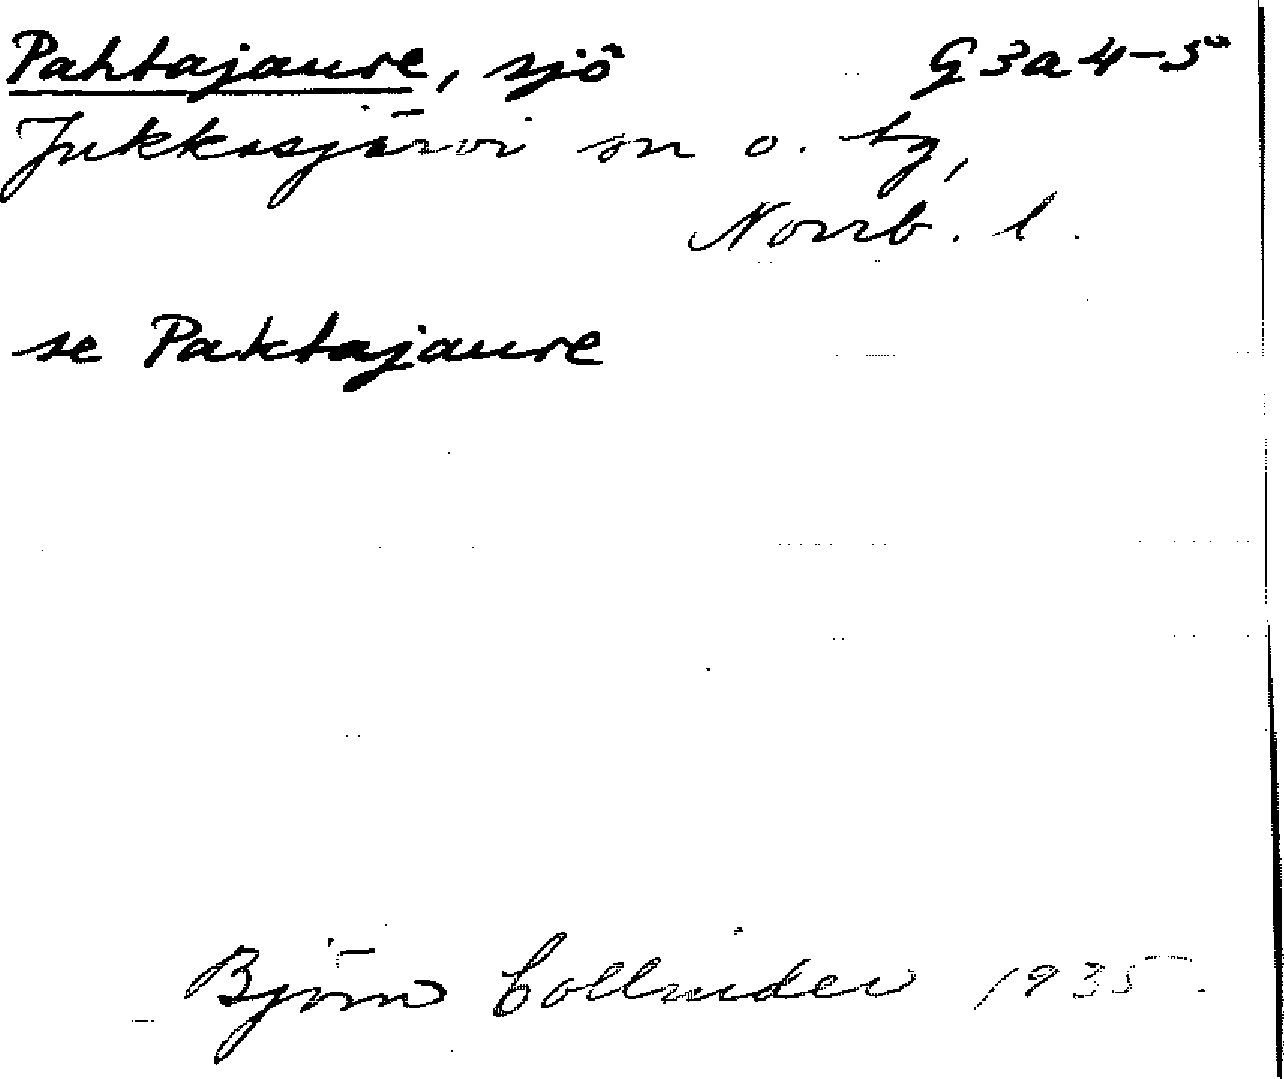 Pahtajaure, sjö G3a4-5
Jukkasjärvi sn o. tg,
Norrb. l.
se Paktajaure
Björn Collinder 1935.